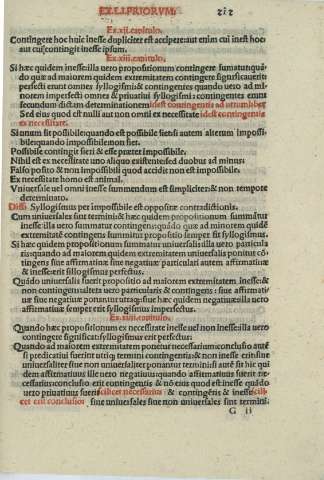 EX.LI.PRIORVM.
Ex.xii.capitulo.
Contingere hoc huic inesse dupliciter est accipere: aut enim cui inest hoc:
aut cui contingit inesse ipsum.
Ex.xiii.capitulo.
Si hæc quidem inesse: illa uero propositionum contingere sumatur: quando
quæ ad maiorem quidem extremitatem contingere significauerit
perfecti erunt omnes syllogismi & contingentes quando uero ad minorem
imperfecti omnes & priuatiui syllogismi contingentis erunt
secundum dictam determinationem idest contingentis ad utrumlibet
Sed eius quod est nulli aut non omni ex necessitate idest contingentis
ex necessitate.
Si unum sit possibile: quando est possibile sienti autem alterum impossibile:
quando impossibile non fiet.
Possibile contingit fieri & esse præter impossibile.
Nihil est ex necessitate uno aliquo existente: sed duobus ad minus:
Falso posito & non impossibili quod accidit non est impossibile.
Ex necessitate homo est animal.
Vniuersale uel omni inesse summendum est simpliciter: & non tempore
determinato.
Diffi. Syllogismus per impossibile est oppositæ contradictionis.
Cum uniuersales sint termini: & hæc quidem propositionum summatur
inesse: illa uero summatur contingens: quando quæ ad minorem quidem
extremitatem contingens summatur propositio semper fit syllogismus.
Si hæc quidem propositionum summatur uniuersalis: illa uero particularis:
quando ad maiorem quidem uniuersalis ponitur contingens
siue affirmatiua siue negatiua: particulari autem affirmatiua
& inesse: erit sillogismus perfectus.
Quando uniuersalis fuerit propositio ad maiorem extremitatem inesse: &
non contingens: altera uero particularis & contingens: siue affirmatiuæ
siue negatiuæ ponantur utræque: siue hæc quidem negatiua: illa uero
affirmatiua: semper erit syllogismus imperfectus.
Ex.xiiii.capitulo.
Quando hæc propositionum ex necessitate inesse uel non inesse: illa uero
contingere significat: syllogismus erit perfectus:
Quando ad maiorem extremitatem ponetur necessarium: conclusio autem
si predicatiui fuerint utrique termini contingentis: & non inesse erit: siue
uniuersaliter siue non uniuersaliter ponantur termini: si autem sit hic quidem
affirmatiuus ille uero negatiuus: quando affirmatiuus fuerit necessarius:
conclusio erit contingentis & non eius quod est inesse quando
uero priuatiuus fuerit scilicet necessarius & contingentis & inesse scilicet
erit conclusio: siue uniuersales siue non uniuersales sint termini.
G ii